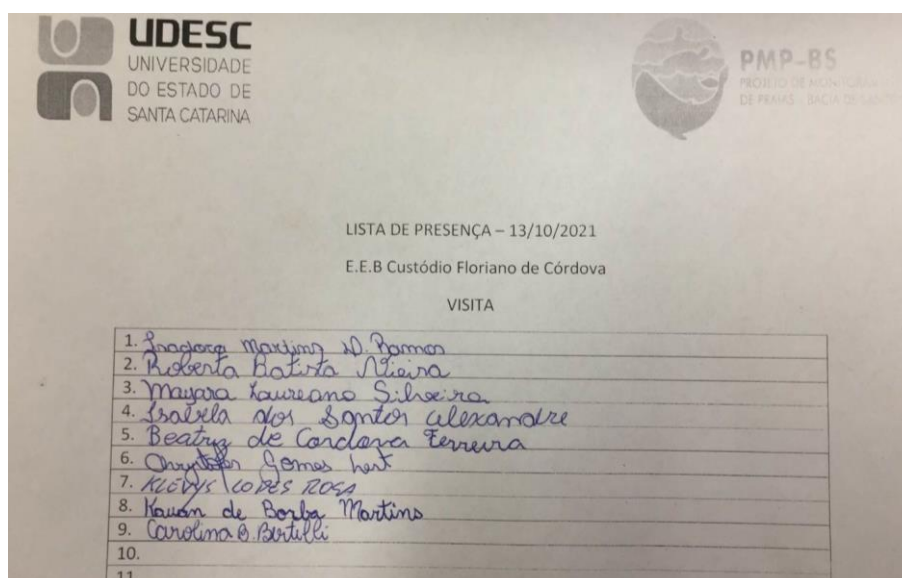 UDESC
UNIVERSIDADE
DO ESTADO DE
SANTA CATARINA
PMP-BS
PROJETO DE MONITORA
DE PRAIAS - BACIA DE SANTO
LISTA DE PRESENÇA – 13/10/2021
E.E.B Custódio Floriano de Córdova
VISITA
1. Isadora Martins D. Ramos
2. Roberta Batista Vieira
3. Mayara Laureano Silveira
4. Isabela dos Santos Alexandre
5. Beatriz de Cordova Ferreira
6. Gomes
7. KLEVYS LOPES ROSA
8. Kauan de Borba Martins
9. Carolina B. Bertelli
10.
11